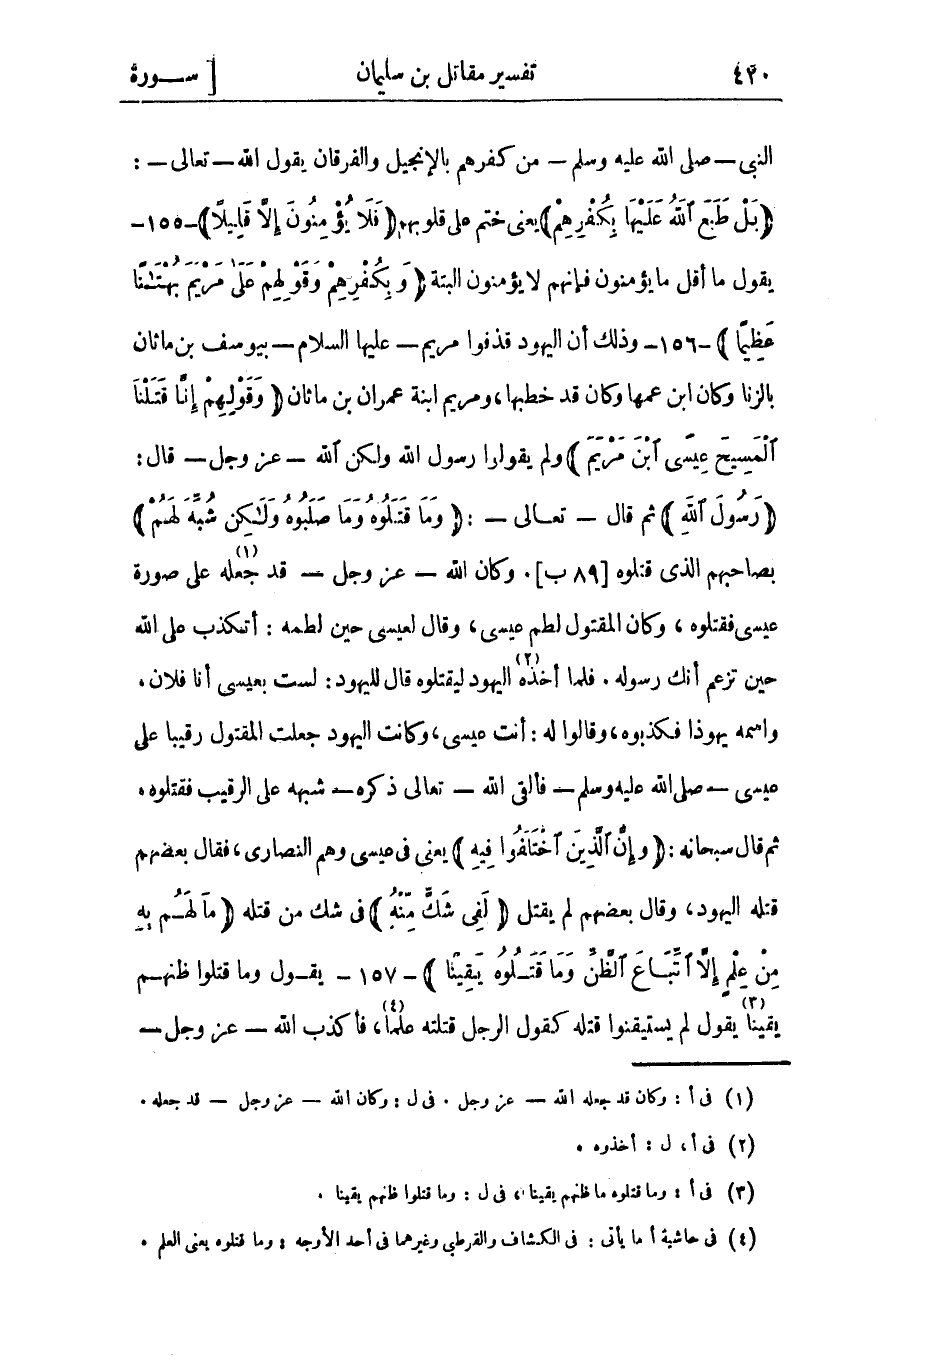 ٤٢٠ تفسير مقاتل بن سليمان [ ســورة
النبى — صلى الله عليه وسلم — من كفرهم بالإنجيل والفرقان يقول الله — تعالى — :
﴿ بَلْ طَبَعَ ٱللَّهُ عَلَيْهَا بِكُفْرِهِمْ ﴾ يعنى ختم على قلوبهم ﴿ فَلَا يُؤْمِنُونَ إِلَّا قَلِيلًا ﴾ - ١٥٥ -
يقول ما أقل ما يؤمنون فإنهم لا يؤمنون البتة ﴿ وَبِكُفْرِهِمْ وَقَوْلِهِمْ عَلَىٰ مَرْيَمَ بُهْتَـٰنًا
عَظِيمًا ﴾ - ١٥٦ - وذلك أن اليهود قذفوا مريم — عليها السلام — بيوسف بن ماثان
بالزنا وكان ابن عمها وكان قد خطبها ، ومريم ابنة عمران بن ماثان ﴿ وَقَوْلِهِمْ إِنَّا قَتَلْنَا
ٱلْمَسِيحَ عِيسَى ٱبْنَ مَرْيَمَ ﴾ ولم يقولوا رسول الله ولكن ٱلله — عز وجل — قال :
﴿ رَسُولَ ٱللَّهِ ﴾ ثم قال — تعـالى — : ﴿ وَمَا قَتَلُوهُ وَمَا صَلَبُوهُ وَلَـٰكِن شُبِّهَ لَهُمْ ﴾
بصاحبهم الذى قتلوه [ ٨٩ ب ] . وكان الله — عز وجل — قد جعله (١) على صورة
عيسى فقتلوه ، وكان المقتول لطم عيسى ، وقال لعيسى حين لطمه : أتكذب على الله
حين تزعم أنك رسوله . فلما أخذه (٢) اليهود ليقتلوه قال لليهود : لست بعيسى أنا فلان .
واسمه يهوذا فكذبوه ، وقالوا له : أنت عيسى ، وكانت اليهود جعلت المقتول رقيبا على
عيسى — صلى الله عليه وسلم — فألقى الله — تعالى ذكره — شبهه على الرقيب فقتلوه .
ثم قال سبحانه : ﴿ وَإِنَّ ٱلَّذِينَ ٱخْتَلَفُوا فِيهِ ﴾ يعنى فى عيسى وهم النصارى ، فقال بعضهم
قتله اليهود ، وقال بعضهم لم يقتل ﴿ لَفِى شَكٍّ مِّنْهُ ﴾ فى شك من قتله ﴿ مَا لَهُـم بِهِ
مِنْ عِلْمٍ إِلَّا ٱتِّبَـاعَ ٱلظَّنِّ وَمَا قَتَـلُوهُ يَقِينًا ﴾ - ١٥٧ - يقـول وما قتلوا ظنهـم
يقينا (٣) يقول لم يستيقنوا قتله كقول الرجل قتلته علما (٤) ، فأكذب الله — عز وجل —
(١) فى أ : وكان قد جعله الله — عز وجل . فى ل : وكان الله — عز وجل — قد جعله .
(٢) فى أ ، ل : أخذوه .
(٣) فى أ : وما قتلوه ما ظنهم يقينا ، فى ل : وما قتلوا ظنهم يقينا .
(٤) فى حاشية أ ما يأتى : فى الكشاف والقرطبى وغيرهما فى أحد الأوجه : وما قتلوه يعنى العلم .